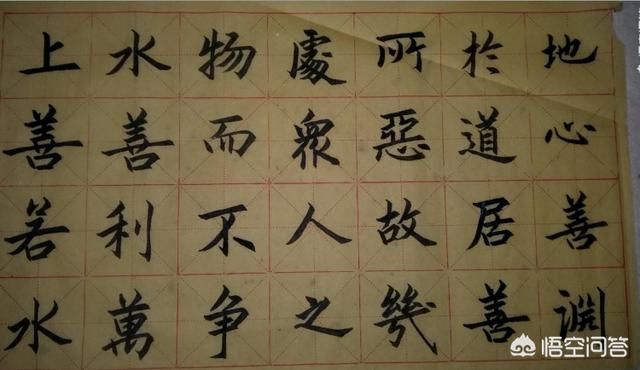 上善若水
水善利萬
物而不争
處衆人之
所惡故幾
於道居善
地心善淵
悟空问答